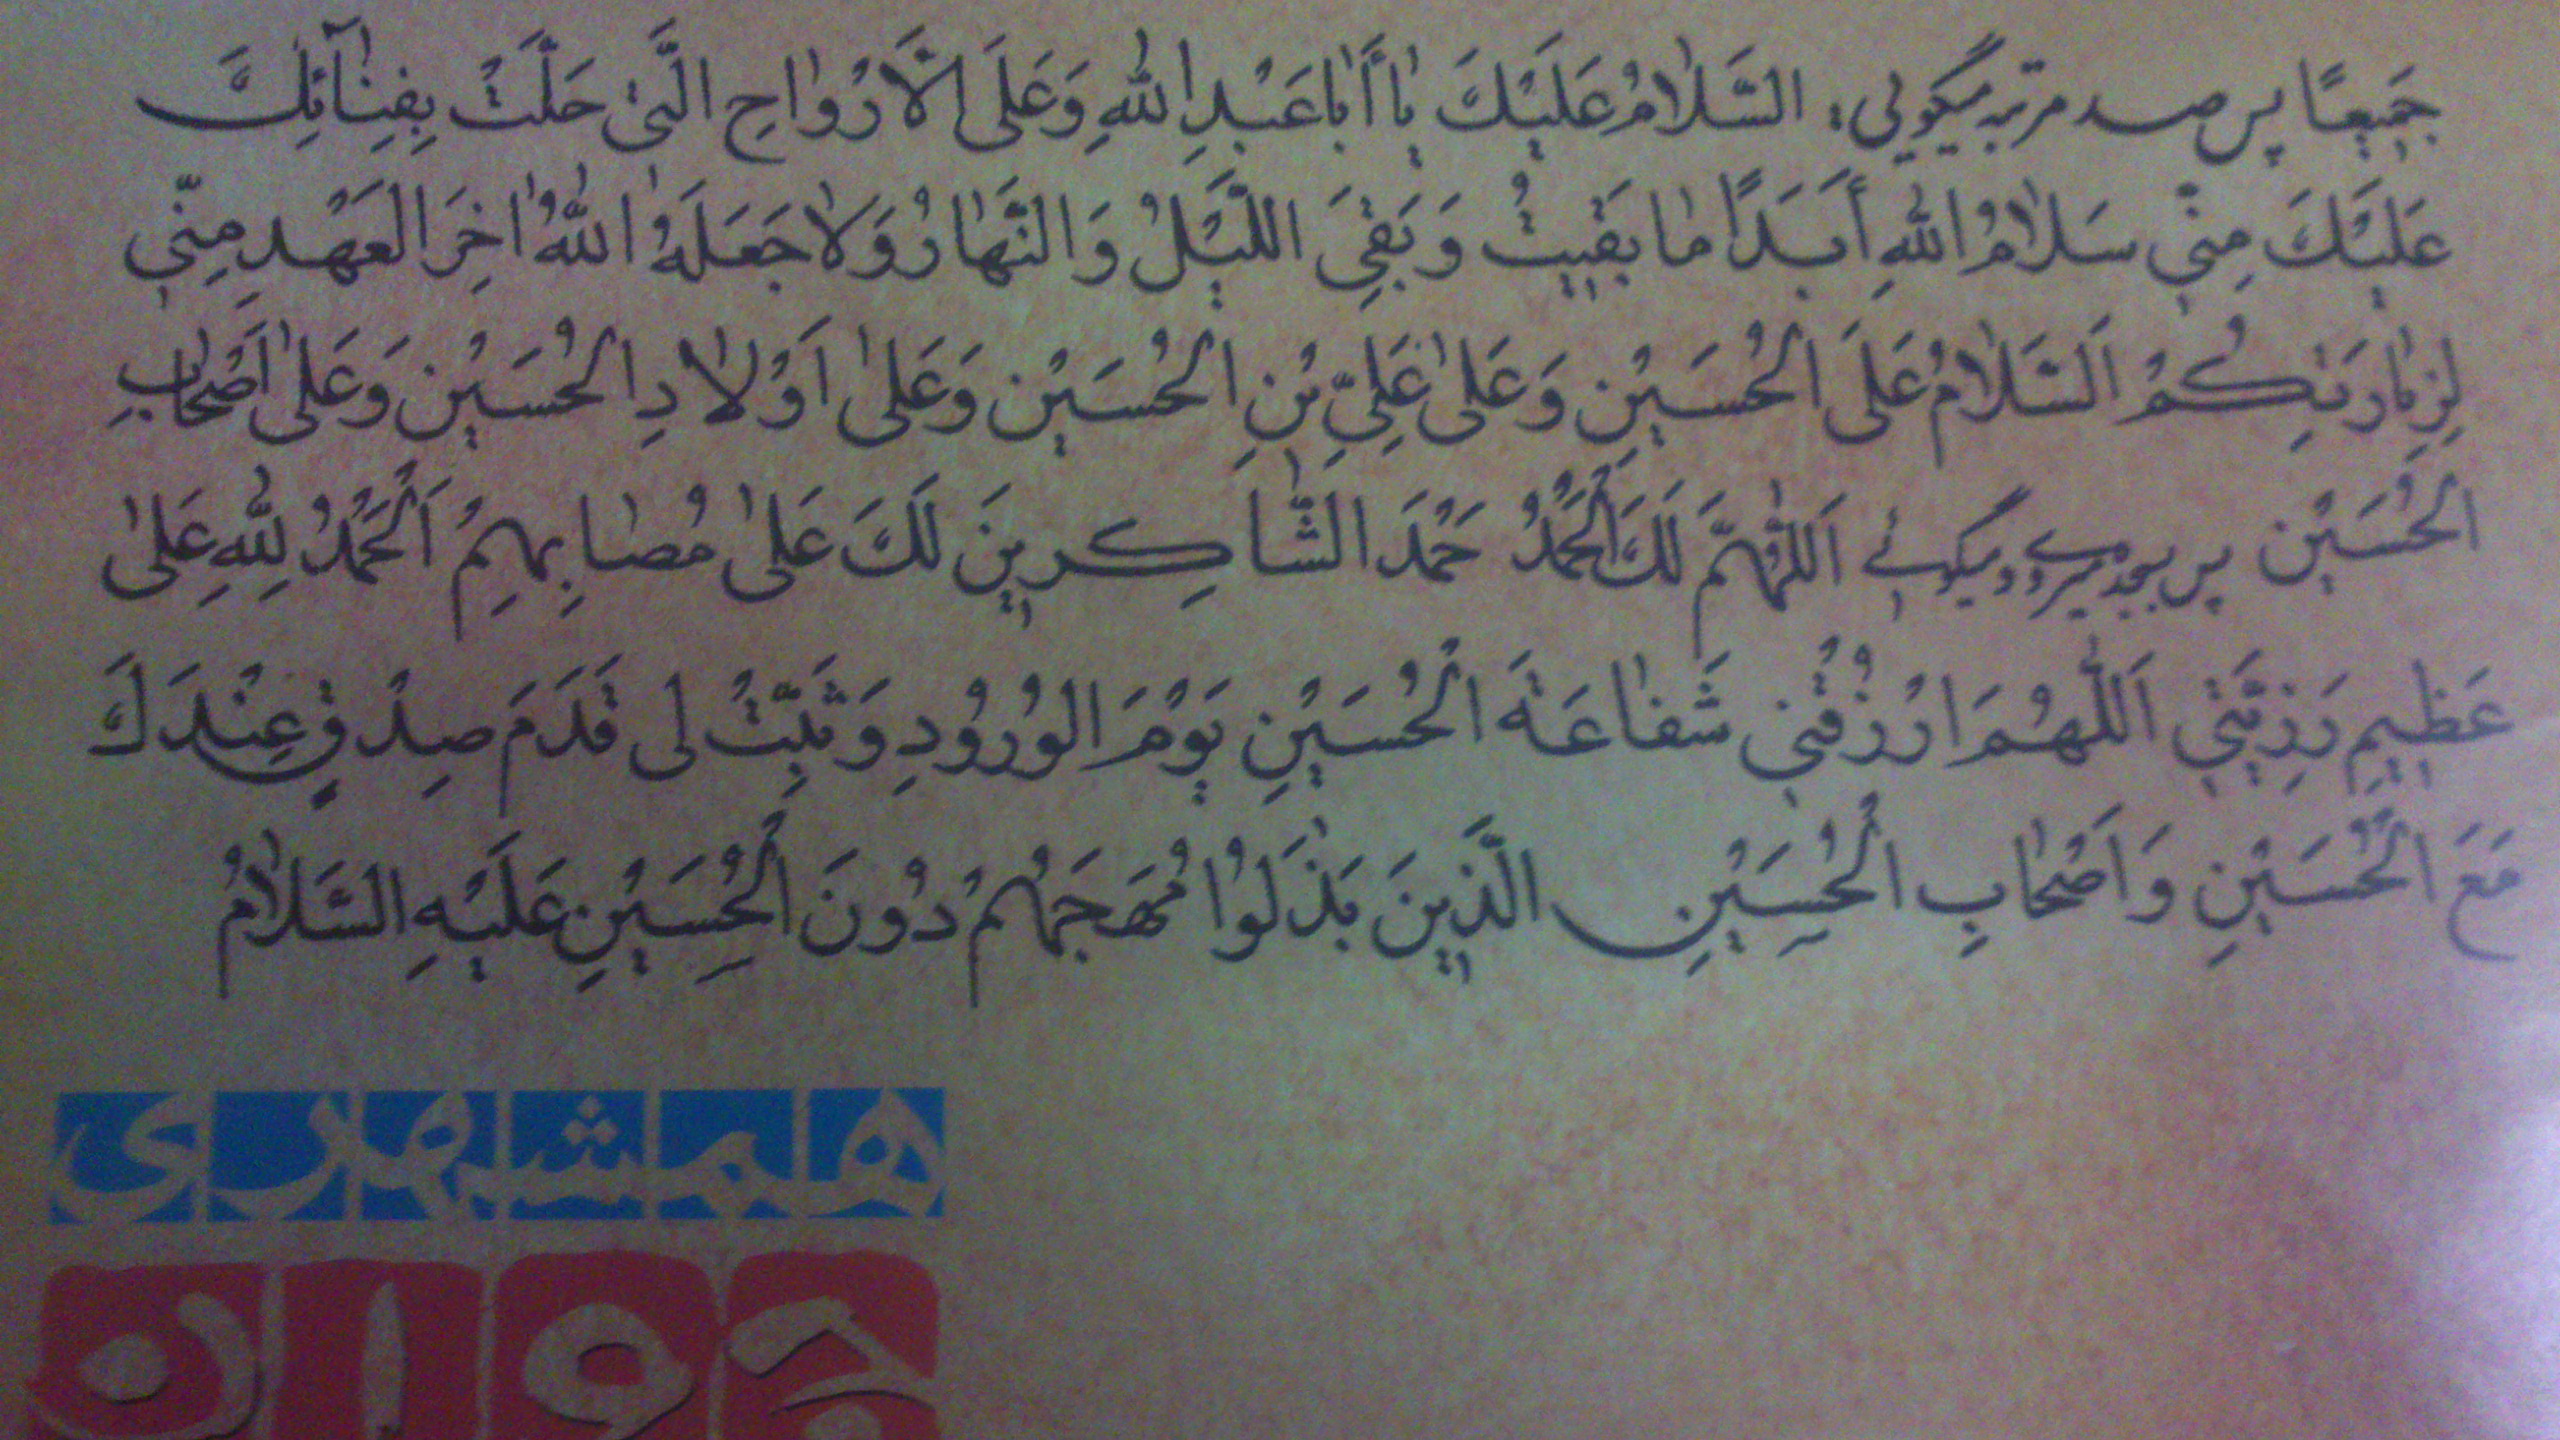 جَمیعًا پس صد مرتبه میگویی: السَّلامُ عَلَیْكَ یا أَبا عَبْدِ اللهِ وَعَلَی الْأَرْواحِ الَّتی حَلَّتْ بِفِنآئِكَ
عَلَیْكَ مِنّی سَلامُ اللهِ أَبَدًا ما بَقیتُ وَبَقِیَ اللَّیْلُ وَالنَّهارُ وَلا جَعَلَهُ اللهُ اخِرَ الْعَهْدِ مِنّی
لِزِیارَتِكُمْ اَلسَّلامُ عَلَی الْحُسَیْنِ وَعَلی عَلِیِّ بْنِ الْحُسَیْنِ وَعَلی اَوْلادِ الْحُسَیْنِ وَعَلی اَصْحابِ
الْحُسَیْنِ پس بسجده میروی و میگوئی اَللّهُمَّ لَكَ الْحَمْدُ حَمْدَ الشّاكِرینَ لَكَ عَلی مُصابِهِمْ اَلْحَمْدُ لِلّهِ عَلی
عَظیمِ رَزِیَّتی اَللّهُمَ ارْزُقْنی شَفاعَةَ الْحُسَیْنِ یَوْمَ الْوُرُودِ وَثَبِّتْ لی قَدَمَ صِدْقٍ عِنْدَكَ
مَعَ الْحُسَیْنِ وَاَصْحابِ الْحُسَیْنِ الَّذینَ بَذَلُوا مُهَجَهُمْ دُونَ الْحُسَیْنِ عَلَیْهِ السَّلامُ
همشهری
جوان